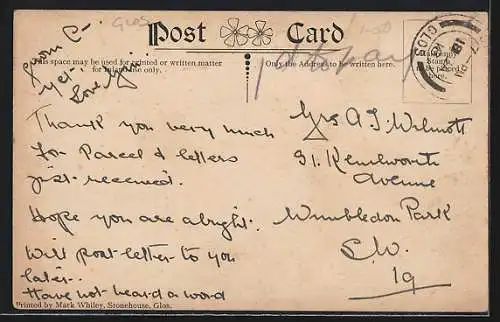 Glos
Post Card
This space may be used for printed or written matter for inland use only.
Only the Address to be written here.
Halfpenny Stamp to be placed here.
from C-
yet.
Love
Thank you very much
for Parcel & letters
just received.
Hope you are alright.
Will post letter to you
later.
Have not heard a word
Mrs A J Wilmott
31. Kenilworth
Avenue
Wimbledon Park
S.W.
19
Printed by Mark Whiley, Stonehouse, Glos.
GLOS